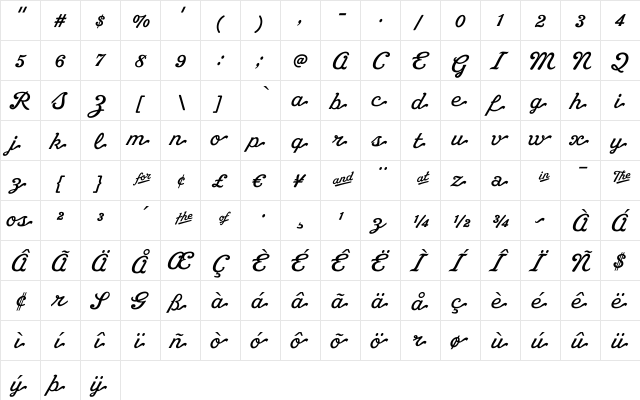 " # $ % ' ( ) , - . / 0 1 2 3 4
5 6 7 8 9 : ; @ A C E G I M N Q
R S Z [ \ ] ` a b c d e f g h i
j k l m n o p q r s t u v w x y
z { } for ¢ £ € ¥ and ¨ at z a in ¯ The
os ² ³ ´ the of · ¸ ¹ z ¼ ½ ¾ ~ À Á
 à Ä Å Œ Ç È É Ê Ë Ì Í Î Ï Ñ $
¢ r S G ß à á â ã ä å ç è é ê ë
ì í î ï ñ ò ó ô õ ö r ø ù ú û ü
ý þ ÿ